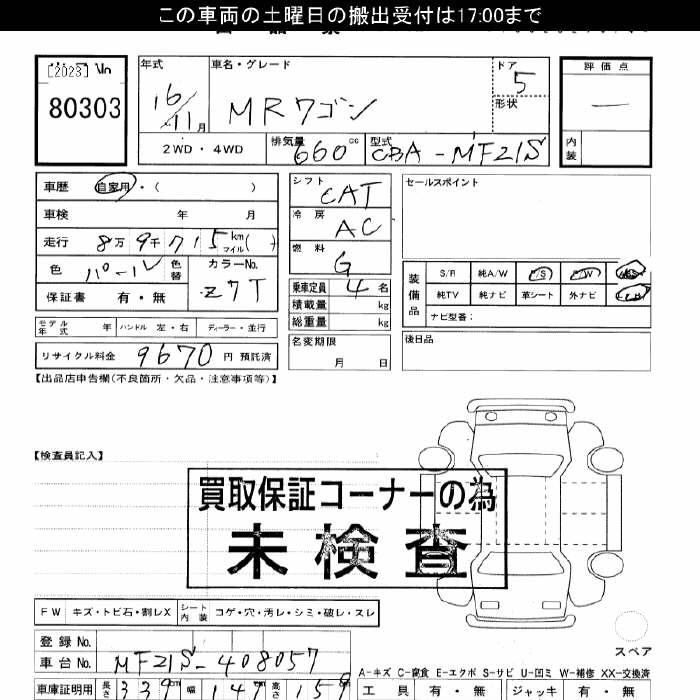 この車両の土曜日の搬出受付は17:00まで
[2023] No
80303
年式 16/11月
車名・グレード MRワゴン
ドア 5
形状
評価点 —
内装
2WD・4WD
排気量 660 cc
型式 CBA-MF21S
車歴 自家用・( )
車検 年 月
走行 8万9千715km マイル( )
色 パール 色替
カラーNo. Z7T
保証書 有・無
シフト CAT
冷房 AC
燃料 G
乗車定員 4名
積載量 kg
総重量 kg
セールスポイント
装備品
S/R 純A/W P/S P/W
純TV 純ナビ 革シート 外ナビ
ナビ型番:
モデル年式 年 ハンドル 左・右 ディーラー・並行
リサイクル料金 9670円 預託済
名変期限
月 日
後日品
【出品店申告欄(不良箇所・欠品・注意事項等)】
【検査員記入】
買取保証コーナーの為
未検査
FW キズ・トビ石・割レX シート内装 コゲ・穴・汚レ・シミ・破レ・スレ
登録No.
車台No. MF21S-408057
スペア
A-キズ C-腐食 E-エクボ S-サビ U-凹ミ W-補修 XX-交換済
車庫証明用 長さ 339cm 幅 147cm 高さ 159
工具 有・無 ジャッキ 有・無